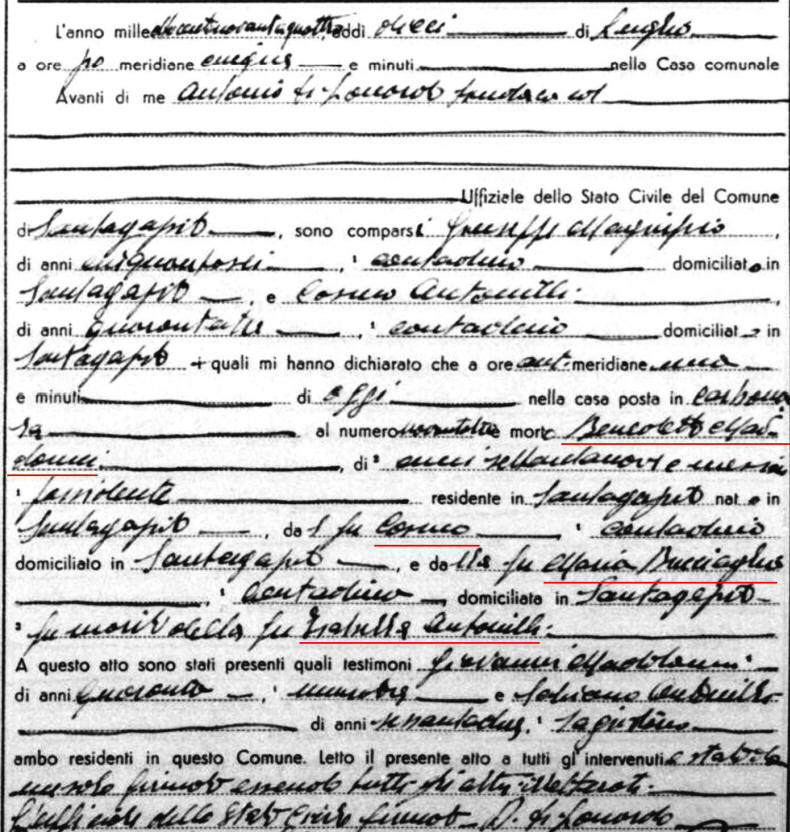 L'anno milleottocentonovantaquattro, addì dieci di Luglio
a ore po meridiane cinque e minuti nella Casa comunale
Avanti di me Antonio di Leonardo Sindaco ed
Uffiziale dello Stato Civile del Comune
di Santagapito, sono comparsi Giuseppe,
di anni cinquantasei, contadino domiciliato in
Santagapito, e Cosmo Antonilli,
di anni quarantatre, contadino domiciliato in
Santagapito quali mi hanno dichiarato che a ore ant. meridiane una
e minuti di oggi nella casa posta in
al numero è morto Benedetto Mad-
donni, di anni settantanove e mesi
possidente residente in Santagapito nato in
Santagapito, da l fu Cosmo contadino
domiciliato in Santagapito, e dalla fu Maria Bucciaglia
contadina, domiciliata in Santagapito
fu marito della fu Isabella Antonilli.
A questo atto sono stati presenti quali testimoni Giovanni Maddonni
di anni quaranta, muratore e Antonilli
di anni sessantadue,
ambo residenti in questo Comune. Letto il presente atto a tutti gl' intervenuti
firmato essendo tutti gli altri illetterati.
L'uffiziale dello Stato Civile firmato A. di Leonardo